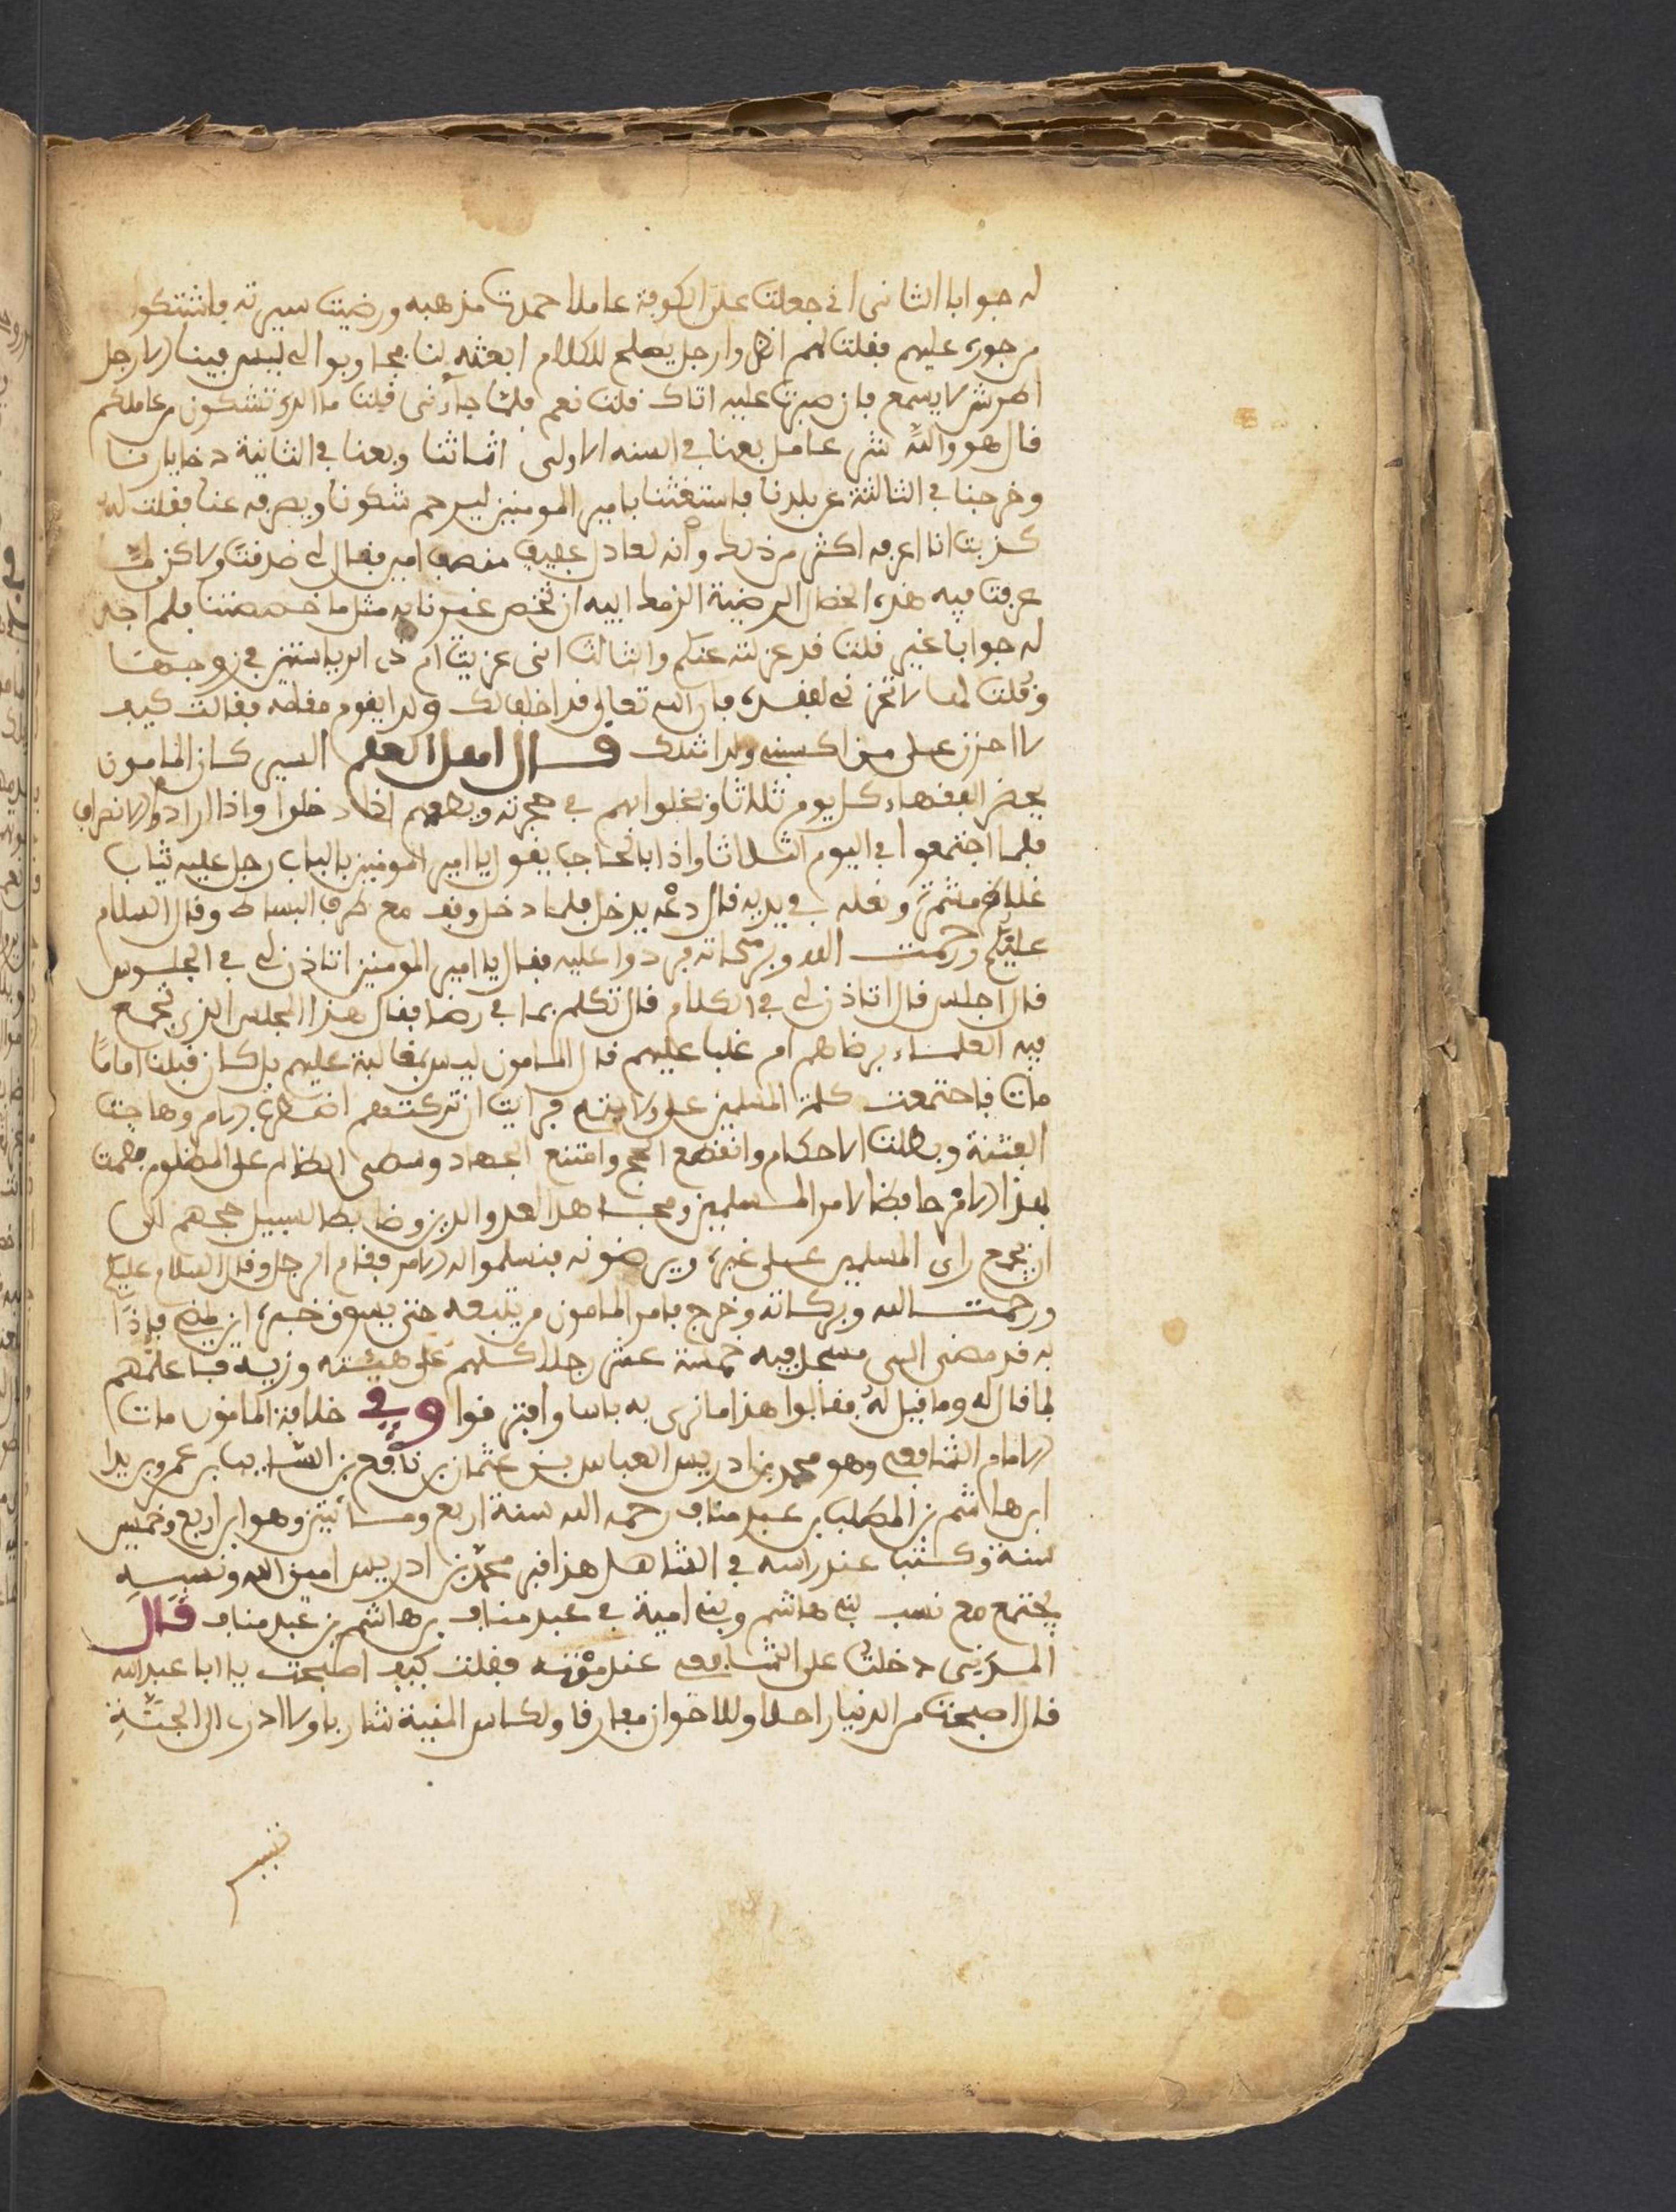 له جوابا الثاني اني جعلت على الكوفة عاملا احمدت مذهبه ورضيت سيرته فاشتكوا
من جوره عليهم فقلت لهم انظروا رجل يصلح للكلام ابعثه لنا فجاوبوا الي ليس فينا الا رجل
اطرش لا يسمع فان صبرت عليه اتاك فلت نعم فلما جاءني قلت ما الذي تشكون من عاملكم
قال هو والله شر عامل بعنا في السنه الاولى اثاثنا وبعنا في الثانية دخايارنا
وخرجنا في الثالثة عن بلدنا فاستغثنا بامير المومنين ليرحم شكونا ويصرفه عنا فقلت له
كذبت انا اعرفه اكثر من ذلك وانه لعادل عفيف منصف امير فقال لي صدقت ولاكن لما
عرفت فيه هذه الخصال المرضية الزمك الله ان تخص غيرنا به مثل ما خصصتنا فلم اجد
له جوابا غير قلت قد عزلته عنكم والثالث انني عزيت ام ذي الرياستين في زوجها
وقلت لها لا تحزني لفقده فان الله تعالى قد اخلف لك ولدا يقوم مقامه فقالت كيف
لا احزن على من اكسبني ولدا مثلك قال اهل العلم السير كان المامون
يحضر الفقهاء كل يوم ثلاثا ويخلوا بهم في حجرته ويطعمهم اذا دخلوا واذا ارادوا الانصراف
فلما اجتمعوا في اليوم الثلاثا واذا بالحاجب يقول يا امير المومنين بالباب رجل عليه ثياب
غلاظ مشمرة ونعله في يديه قال دعه يدخل فلما دخل وقف مع طرف البساط وقال السلام
عليكم ورحمت الله وبركاته فردوا عليه فقال يا امير المومنين اتاذن لي في الجلوس
قال اجلس قال اتاذن لي في الكلام قال تكلم بما في رضا فقال هذا المجلس الذي تجمع
فيه العلماء برضاهم ام غلبا عليهم قال المامون ليس بمغالبة عليهم بل كان قبلنا اماما
مات فاجتمعت كلمة المسلمين على ولايته فرايت ان تركتهم اضطرب الامر وهاجت
الفتنة وبطلت الاحكام وانقطع الحج وامتنع الجهاد وسطى الظالم على المظلوم فقمت
بهذا الامر حافظا لامر المسلمين ومجاهدا لعدو الدين وضابطا لسبيل حجهم الى
ان يجمع راي المسلمين على غيره ويرضونه فنسلموا له الامر فقام الرجل وقال السلام عليكم
ورحمت الله وبركاته وخرج فامر المامون من يتبعه حتى يسوق خبره اين يمضي فاذا
به قد مضى الى مسجد فيه خمسة عشر رجلا كلهم على هيئته وزيه فاعلمهم
بما قال له وما قيل له فقالوا هذا ما نرى به باسا وافترقوا وفي خلافة المامون مات
الامام الشافعي وهو محمد بن ادريس العباس بن عثمان بن نافع بن السايب بن عمر بن يدا
ابن هاشم بن المطلب بن عبد مناف رحمه الله سنة اربع ومائتين وهو ابن اربع وخمسين
سنة وكتب عند راسه في الشاهل هذا قبر محمد بن ادريس امين الله ونسبه
يجتمع مع نسب بني هاشم وبني امية في عبد مناف بن هاشم بن عبد مناف قال
المزني دخلت على الشافعي عند موته فقلت كيف اصبحت يا ابا عبد الله
قال اصبحت من الدنيا راحلا وللاخوان مفارقا ولكاس المنية شاربا ولا ادري الى الجنة
تتبير